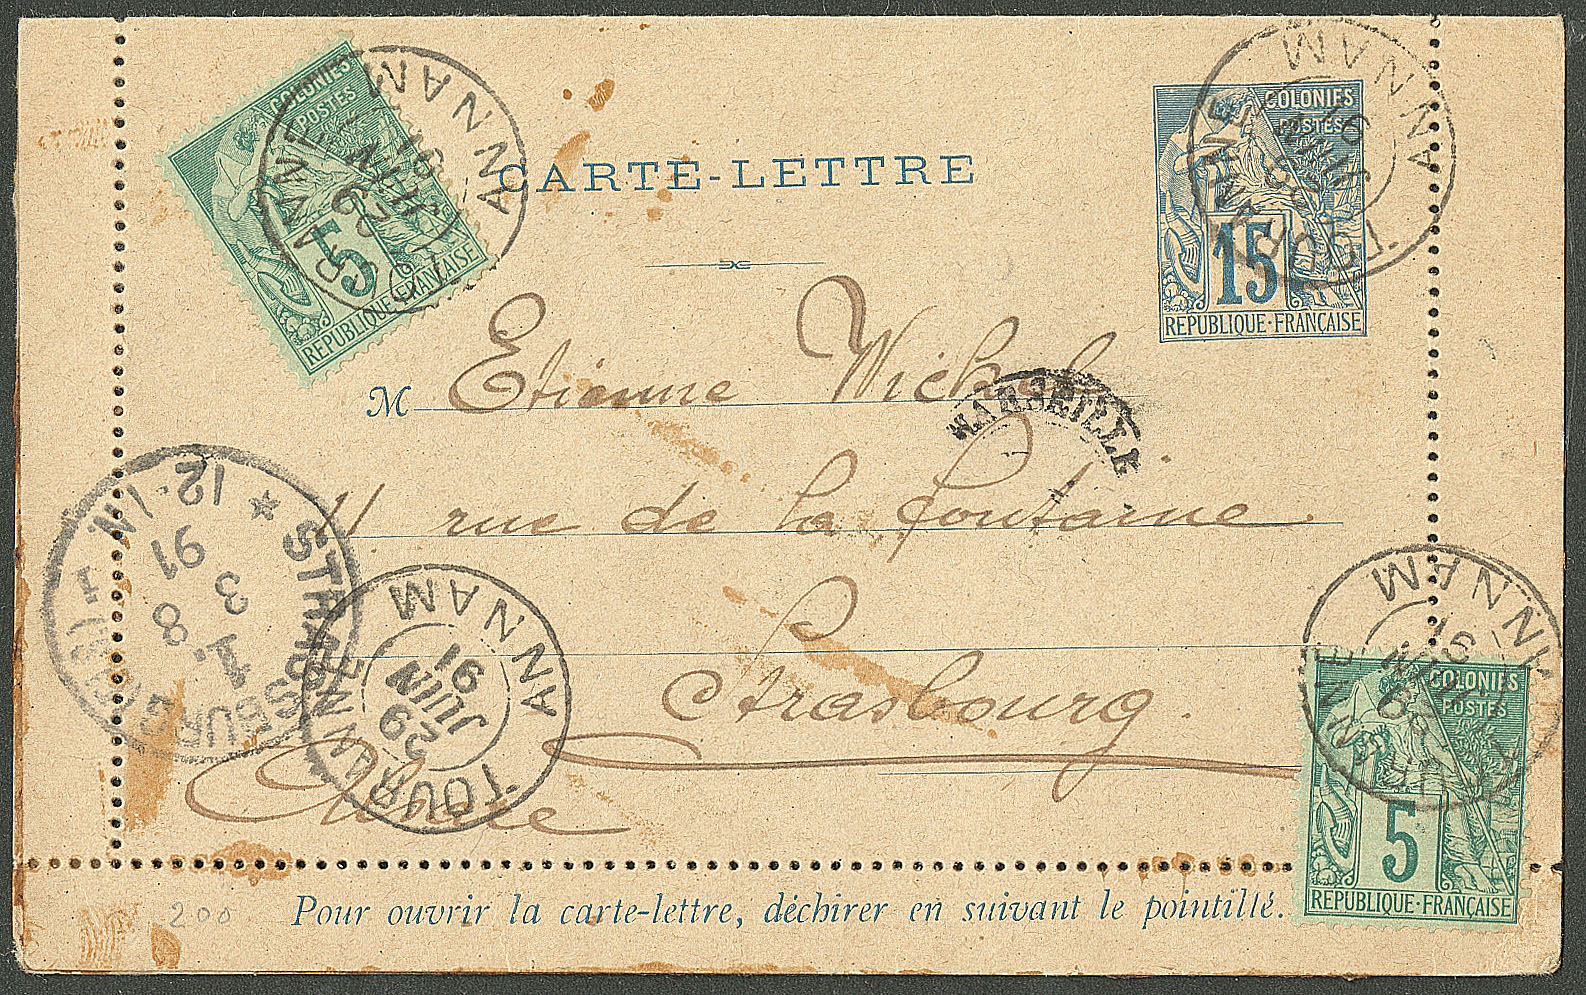 COLONIES
POSTES
5
REPUBLIQUE FRANÇAISE
TOURANNE ANNAM
29
JUIN
91
CARTE-LETTRE
COLONIES
POSTES
15
REPUBLIQUE·FRANÇAISE
TOURANNE ANNAM
29
JUIN
91
M Etienne Michel
MARSEILLE
11 rue de la fontaine
Strasbourg
Alsace
STRASSBURG
1.
8 3
91
12-1N
TOURANNE ANNAM
29
JUIN
91
TOURANNE ANNAM
29
JUIN
91
COLONIES
POSTES
5
REPUBLIQUE·FRANÇAISE
200
Pour ouvrir la carte-lettre, déchirer en suivant le pointillé.